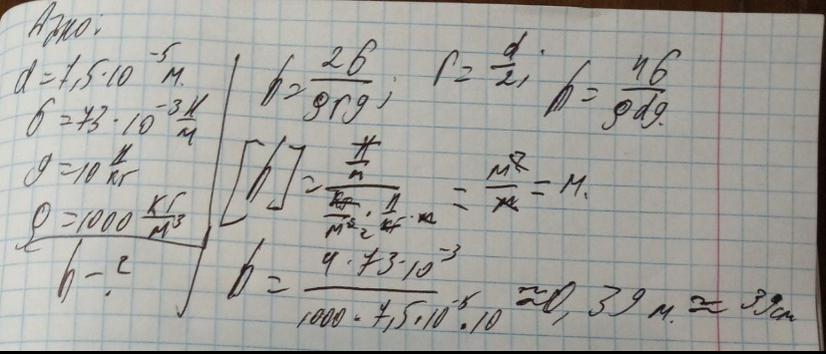 Дано:
d = 7,5·10⁻⁵ м.
σ = 73·10⁻³ Н/м
g = 10 Н/кг
ρ = 1000 кг/м³
h – ?
h = 2σ/ρrg; r = d/2; h = 4σ/ρdg.
[h] = (Н/м)/(кг/м³ · Н/кг · м) = м²/м = м.
h = 4·73·10⁻³/1000·7,5·10⁻⁵·10 ≈ 0,39 м. ≈ 39 см